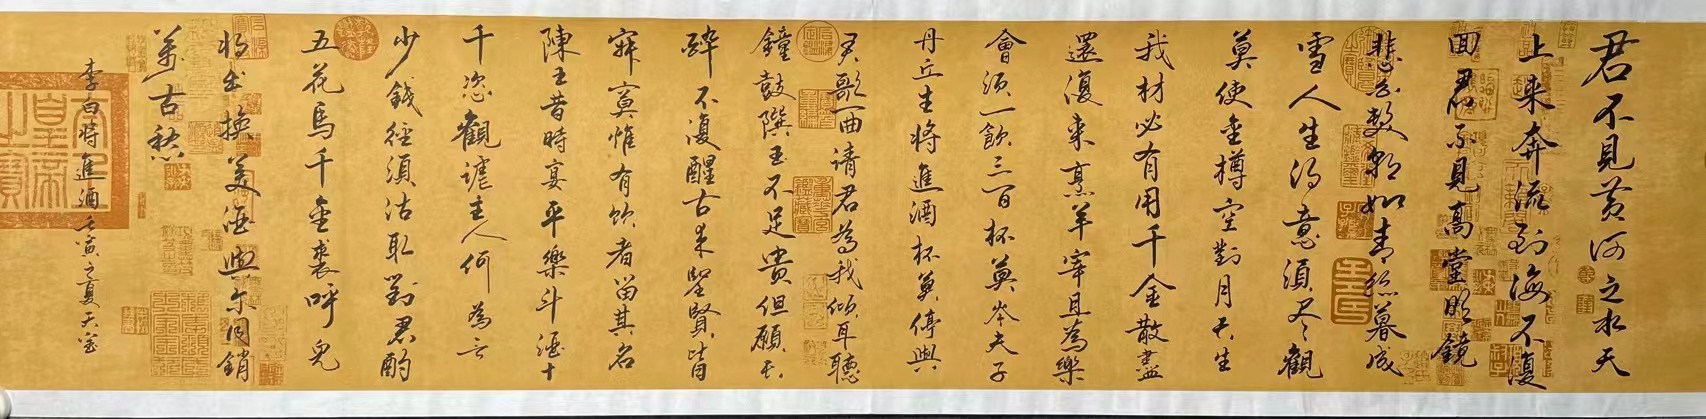 君不見黄河之水天
上来奔流到海不復
回君不見高堂明鏡
悲白髮朝如青絲暮成
雪人生得意須尽觀
莫使金樽空對月天生
我材必有用千金散盡
還復来烹羊宰且為樂
會須一飲三百杯莫岑夫子
丹丘生將進酒杯莫停與
君歌一曲请君為我倾耳聽
鐘鼓饌玉不足貴但願長
醉不復醒古来聖賢皆
寂寞惟有飲者留其名
陳王昔時宴平樂斗酒十
千恣觀謔主人何為言
少錢徑須沽取對君酌
五花馬千金裘呼兒
將出換美酒與尔同銷
萬古愁
李白將進酒壬寅之夏天